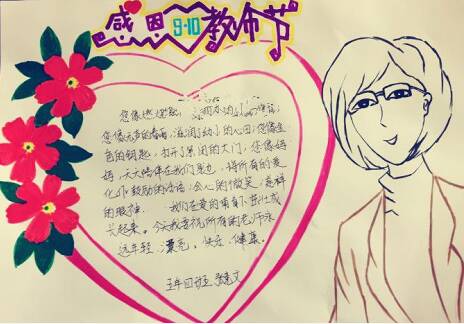 感恩 9·10 教师节
您像
您像无声的春雨,滋润了幼小的心田;您像金
色的钥匙,打开了黑闭的大门;您像妈
妈,天天陪伴在我们身边,将所有的爱
化作鼓励的话语,会心的微笑,慈祥
的眼神。 我们在爱的哺育下茁壮成
长起来。今天我要祝所有的老师永
远年轻、漂亮、快乐、健康。
五年四班